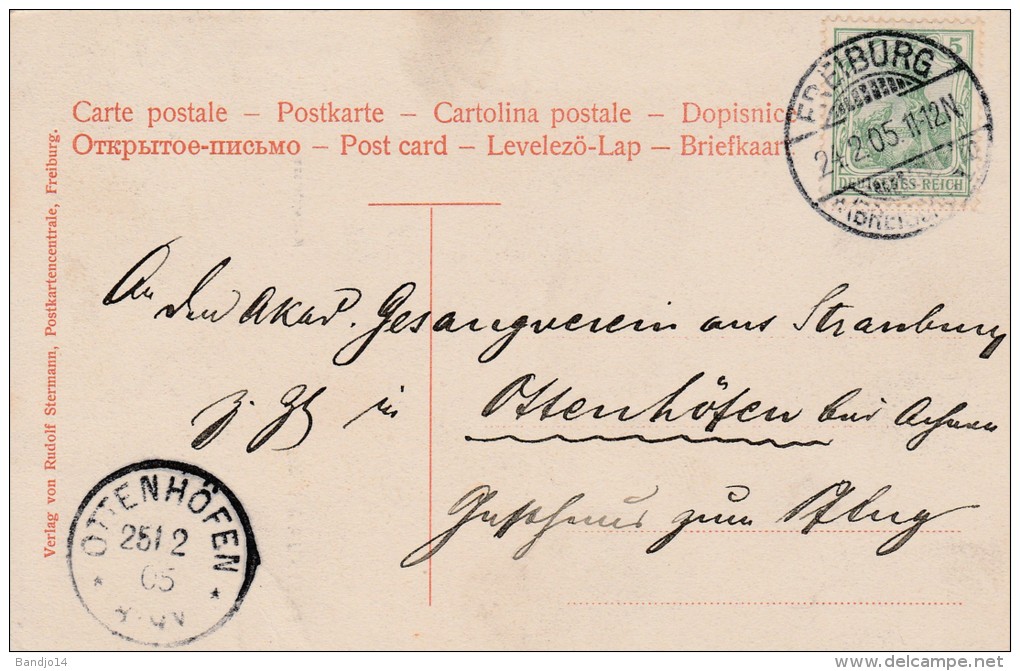 Carte postale – Postkarte – Cartolina postale – Dopisnic
Открытое-письмо – Post card – Levelezö-Lap – Briefkaar
FREIBURG
24.2.05.11-12N.
(BREISGAU)
5
DEUTSCHES-REICH
An den Akad. Gesangverein aus Strassburg
z. Zt in Ottenhöfen bei Achern
Gasthaus zum Pflug
OTTENHÖFEN
25/2
05
Verlag von Rudolf Stermann, Postkartencentrale, Freiburg.
Bandjo14
www.delcampe.net